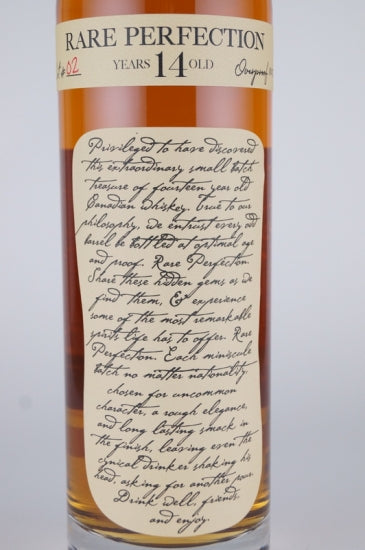 RARE PERFECTION
# 02
YEARS 14 OLD
Overproof
Privileged to have discovered
this extraordinary small batch
treasure of fourteen year old
Canadian Whiskey. True to our
philosophy, we entrust every odd
barrel be bottled at optimal age
and proof. Rare Perfection.
Share these hidden gems as we
find them, & experience
some of the most remarkable
spirits life has to offer. Rare
Perfection. Each miniscule
batch no matter nationality,
chosen for uncommon
character, a rough elegance,
and long lasting smack in
the finish, leaving even the
cynical drinker shaking his
head, asking for another pour.
Drink well, friends.
and enjoy.